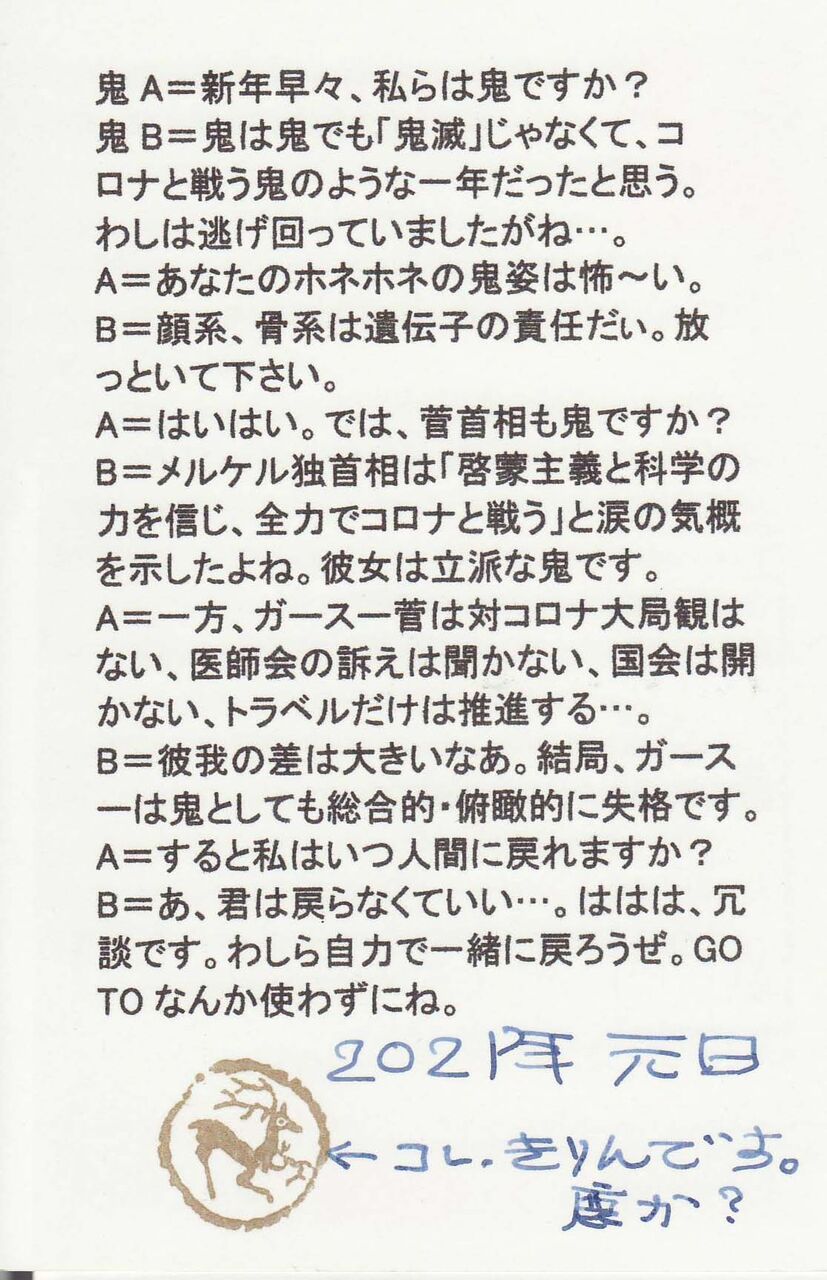 鬼A＝新年早々、私らは鬼ですか？
鬼B＝鬼は鬼でも「鬼滅」じゃなくて、コ
ロナと戦う鬼のような一年だったと思う。
わしは逃げ回っていましたがね…。
A＝あなたのホネホネの鬼姿は怖～い。
B＝顔系、骨系は遺伝子の責任だぃ。放
っといて下さい。
A＝はいはい。では、菅首相も鬼ですか？
B＝メルケル独首相は「啓蒙主義と科学の
力を信じ、全力でコロナと戦う」と涙の気概
を示したよね。彼女は立派な鬼です。
A＝一方、ガースー菅は対コロナ大局観は
ない、医師会の訴えは聞かない、国会は開
かない、トラベルだけは推進する…。
B＝彼我の差は大きいなあ。結局、ガース
ーは鬼としても総合的・俯瞰的に失格です。
A＝すると私はいつ人間に戻れますか？
B＝あ、君は戻らなくていい…。ははは、冗
談です。わしら自力で一緒に戻ろうぜ。GO
TOなんか使わずにね。
2021年 元日
←コレ、きりんです。
鹿か？